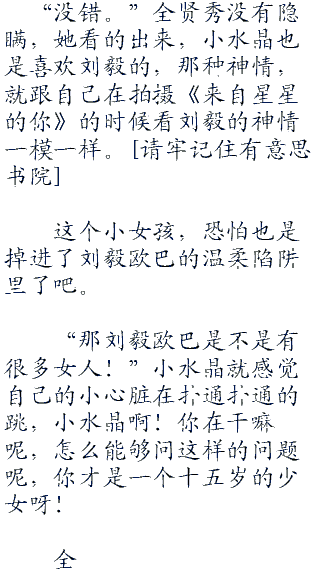 “没错。”全贤秀没有隐
瞒，她看的出来，小水晶也
是喜欢刘毅的，那种神情，
就跟自己在拍摄《来自星星
的你》的时候看刘毅的神情
一模一样。[请牢记住有意思
书院]
这个小女孩，恐怕也是
掉进了刘毅欧巴的温柔陷阱
里了吧。
“那刘毅欧巴是不是有
很多女人！”小水晶就感觉
自己的小心脏在扑通扑通的
跳，小水晶啊！你在干嘛
呢，怎么能够问这样的问题
呢，你才是一个十五岁的少
女呀！
全